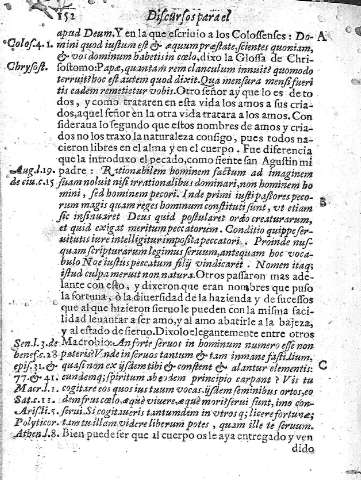 152 Discursos para el
apud Deum. Y en la que escriuio a los Colossenses: Do- A
Colos. 4.1. mini quod iustum est & æquum præstate, scientes quoniam,
& vos dominum habetis in cœlo. dixo la Glossa de Chri-
Chrysost. sostomo: Papæ, quantam rem clanculum innuit! quomodo
terruit! hoc est autem quod dixit. Qua mensura mensi fueri-
tis eadem remetietur vobis. Otro señor ay que lo es de to
dos, y como trataren en esta vida los amos a sus cria-
dos, aquel señor en la otra vida tratara a los amos. Con
sideraua lo segundo que estos nombres de amos y cria-
dos no los traxo la naturaleza consigo, pues todos na-
cieron libres en el alma y en el cuerpo. Fue diferencia
que la introduxo el pecado, como siente san Agustin mi
Aug. l. 19. padre: Rationabilem hominem factum ad imaginem
de ciu. c. 15 suam noluit nisi irrationabilibus dominari, non hominem ho
mini, sed hominem pecori. Inde primi iusti pastores peco-
rum magis quam reges hominum constituti sunt, vt etiam B
sic insinuaret Deus quid postularet ordo creaturarum,
et quid exigat meritum peccatorum. Conditio quippe ser-
uitutis iure intelligitur imposita peccatori. Proinde nus-
quam scripturarum legimus seruum, antequam hoc voca-
bulo Noe iustus peccatum filij vindicaret. Nomen itaq;
istud culpa meruit non natura. Otros passaron mas ade-
lante con esto, y dixeron que eran nombres que puso
la fortuna, ò la diuersidad de la hazienda y de sucessos
que al que hizieron sieruo le pueden con la misma faci
lidad leuantar a ser amo, y al amo abatirle a la bajeza,
y al estado de sieruo. Dixolo elegantemente entre otros
Sen. l. 3. de Macrobio: An si seruis in hominum numero esse non
benef. c. 28 pateris? Vnde in seruos tantum & tam immane fastidium,
epis. 31. & quasi non ex ijsdem tibi & constent & alantur elementis: C
77. & 41. eundemq; spiritum ab eodem principio carpant? Vis tu
Macr. l. cogitare eos quos ius tuum vocas, ijsdem seminibus ortos, eo
Sat. c. 11. dem frui cœlo, æquè viuere, æquè mori? serui sunt, imo con-
Arist. l. 5. serui. Si cogitaueris tantundem in vtrosq; licere fortunæ;
Polyticor. tam tu illum videre liberum potes, quam ille te seruum.
Athen. l. 8. Bien puede ser que al cuerpo os le aya entregado y ven
dido